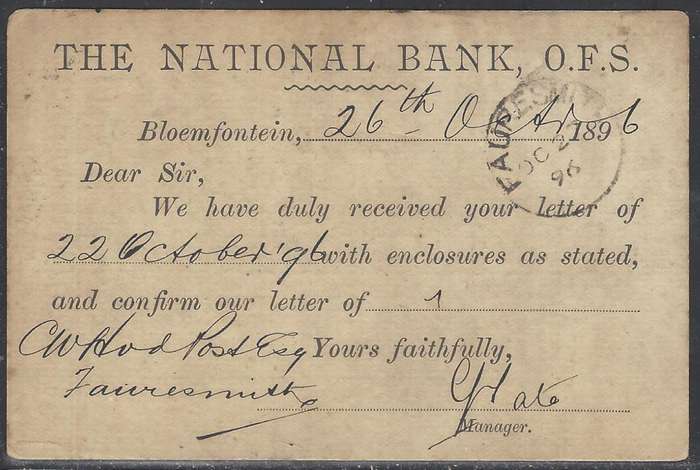 THE NATIONAL BANK, O.F.S.
Bloemfontein, 26th Oct 1896
FAURESMITH
OC 2
96
Dear Sir,
We have duly received your letter of
22 October '96 with enclosures as stated,
and confirm our letter of
C W Hvd Post Esq Yours faithfully,
Fauresmith
Manager.